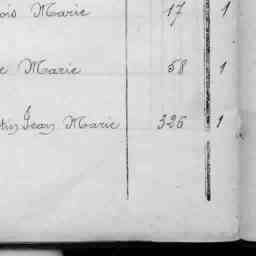 ois Marie 17 1
e Marie 58 1
tin Jean Marie 326 1